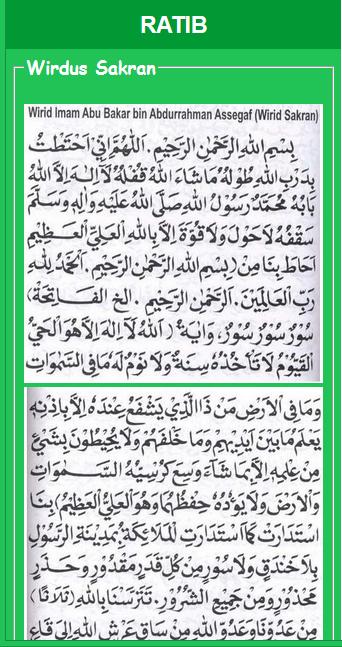 RATIB
Wirdus Sakran
Wirid Imam Abu Bakar bin Abdurrahman Assegaf (Wirid Sakran)
بِسْمِ اللهِ الرَّحْمٰنِ الرَّحِيْمِ. اَللّٰهُمَّ اِنِّيْ اَحْتَطْتُ
بِدَرْبِ اللهِ طُوْلُهُ مَا شَاءَ اللهُ قُفْلُهُ لَا اِلٰهَ اِلَّا اللهُ
بَابُهُ مُحَمَّدٌ رَسُوْلُ اللهِ صَلَّى اللهُ عَلَيْهِ وَاٰلِهِ وَسَلَّمَ
سَقْفُهُ لَاحَوْلَ وَلَا قُوَّةَ اِلَّا بِاللهِ الْعَلِيِّ الْعَظِيْمِ
اَحَاطَ بِنَا مِنْ (بِسْمِ اللهِ الرَّحْمٰنِ الرَّحِيْمِ. اَلْحَمْدُ لِلّٰهِ
رَبِّ الْعَالَمِيْنَ. اَلرَّحْمٰنِ الرَّحِيْمِ. الخ الفَاتِحَة)
سُوْرٌ سُوْرٌ سُوْرٌ، وَاٰيَةُ (اَللهُ لَا اِلٰهَ اِلَّا هُوَ الْحَيُّ
الْقَيُّوْمُ لَا تَأْخُذُهُ سِنَةٌ وَلَا نَوْمٌ لَهُ مَا فِى السَّمٰوَاتِ
وَمَا فِى الْاَرْضِ مَنْ ذَا الَّذِيْ يَشْفَعُ عِنْدَهُ اِلَّا بِاِذْنِهِ
يَعْلَمُ مَا بَيْنَ اَيْدِيْهِمْ وَمَا خَلْفَهُمْ وَلَا يُحِيْطُوْنَ بِشَيْءٍ
مِنْ عِلْمِهِ اِلَّا بِمَا شَاءَ وَسِعَ كُرْسِيُّهُ السَّمٰوَاتِ
وَالْاَرْضَ وَلَا يَؤُدُهُ حِفْظُهُمَا وَهُوَ الْعَلِيُّ الْعَظِيْمُ) بِنَا
اسْتَدَارَتْ كَمَا اسْتَدَارَتِ الْمَلَائِكَةُ بِمَدِيْنَةِ الرَّسُوْلِ
بِلَا خَنْدَقٍ وَلَا سُوْرٍ مِنْ كُلِّ قَدَرٍ مَقْدُوْرٍ وَحَذَرٍ
مَحْذُوْرٍ وَمِنْ جَمِيْعِ الشُّرُوْرِ. تَتَرَّسْنَا بِاللهِ (ثَلَاثًا)
مِنْ عَدُوِّنَا وَعَدُوِّ اللهِ مِنْ سَاقِ عَرْشِ اللهِ اِلَى قَاعِ